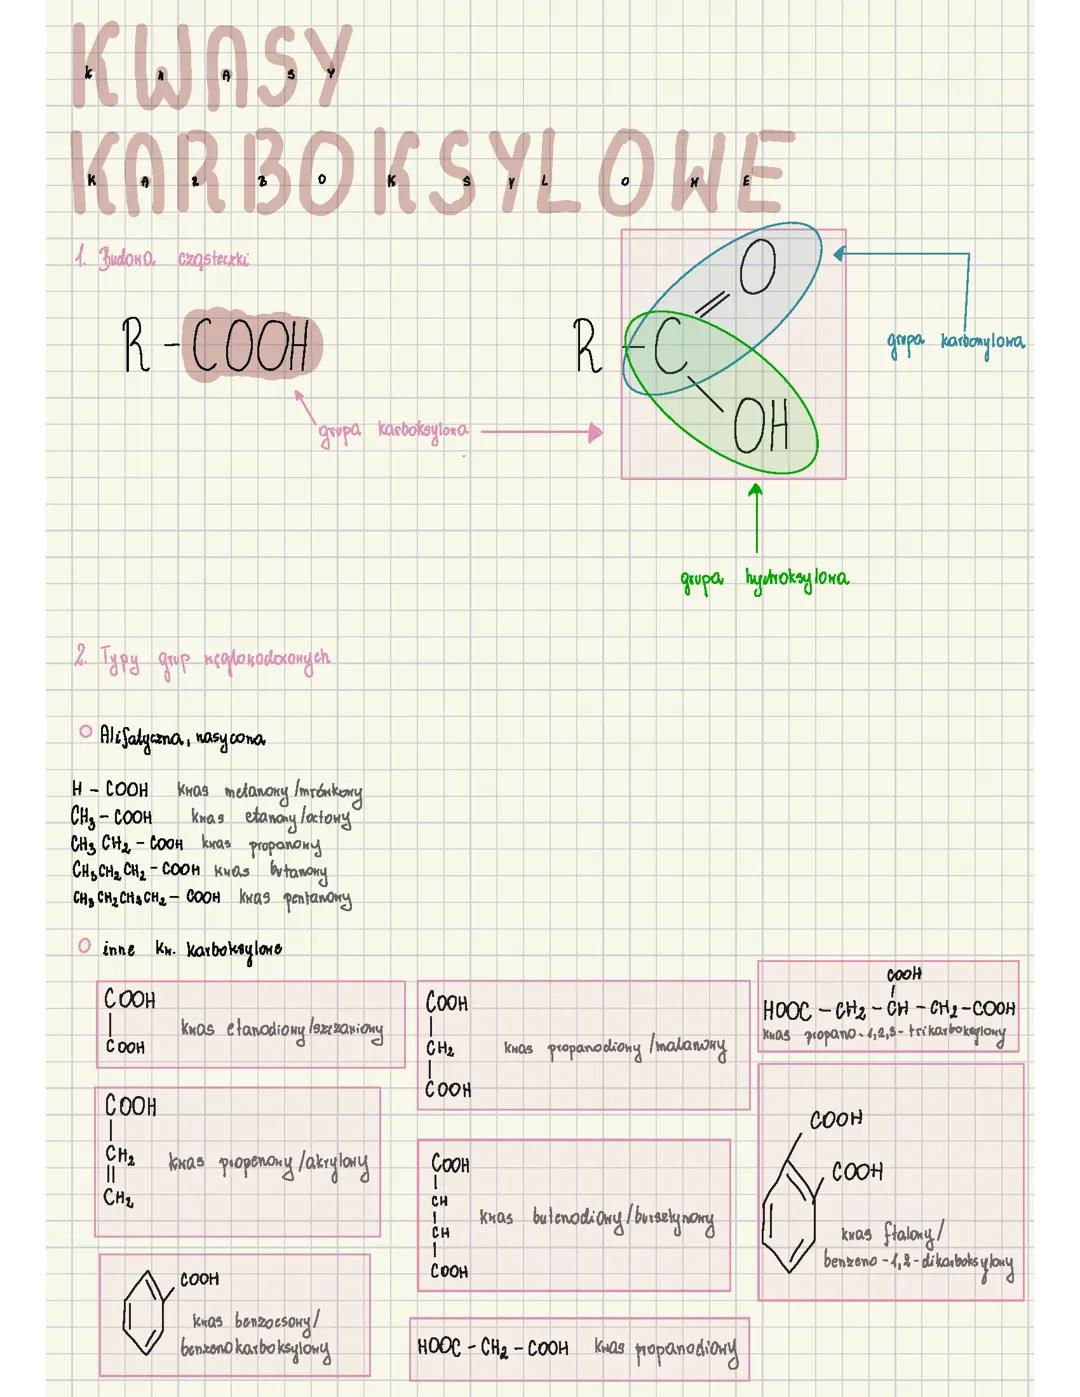 KWASY
K W A S Y
KARBOKSYLOWE
K A R B O K S Y L O W E
1. Budowa cząsteczki
R - COOH
grupa karboksylowa
R - C
O
OH
grupa karbonylowa
grupa hydroksylowa
2. Typy grup węglowodorowych
Alifatyczna, nasycona
H - COOH kwas metanowy /mrówkowy
CH3 - COOH kwas etanowy /octowy
CH3 CH2 - COOH kwas propanowy
CH3 CH2 CH2 - COOH kwas butanowy
CH3 CH2 CH2 CH2 - COOH kwas pentanowy
inne kw. karboksylowe
COOH
|
COOH
kwas etanodiowy /szczawiowy
COOH
|
CH2
||
CH2
kwas propenowy /akrylowy
COOH
kwas benzoesowy/
benzenokarboksylowy
COOH
|
CH2
|
COOH
kwas propanodiowy /malonowy
COOH
|
CH
|
CH
|
COOH
kwas butenodiowy /bursztynowy
HOOC - CH2 - COOH kwas propanodiowy
COOH
|
HOOC - CH2 - CH - CH2 - COOH
kwas propano - 1,2,3 - trikarboksylowy
COOH
COOH
kwas ftalowy /
benzeno - 1,2 - dikarboksylowy